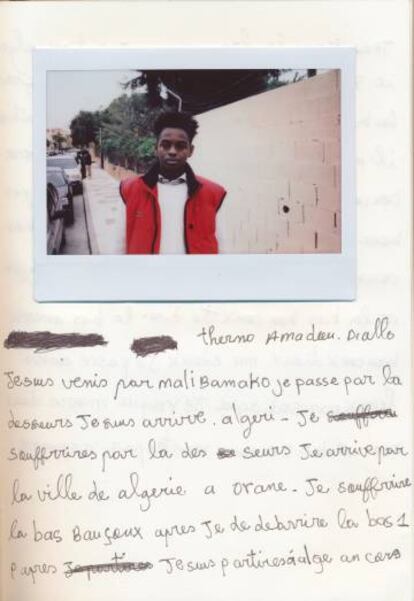 therno Amadou. Diallo
Je suis venis par mali Bamako je passe par la
desseurs Je suis arrive. algeri - Je
soufferires par la des seurs Je arrive par
la ville de algerie a orane - Je soufferire
la bas Bauçoux apres Je de debrrire la bas 1
p apres Je suis partires á alge an cars